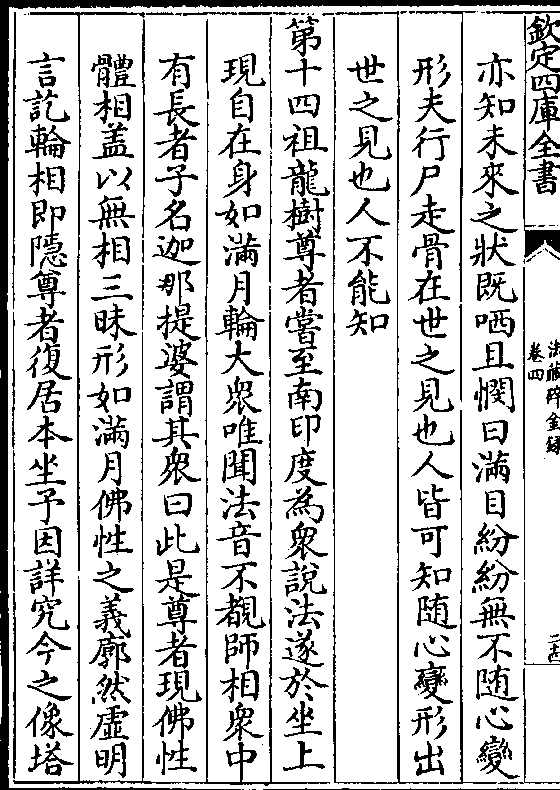 欽定四庫全書
法藏碎金錄
卷四
亦知未來之狀既哂且憫曰滿目紛紛無不随心變
形夫行尸走骨在世之見也人皆可知随心變形出
世之見也人不能知
第十四祖龍樹尊者嘗至南印度為衆說法遂於坐上
現自在身如滿月輪大衆唯聞法音不覩師相衆中
有長者子名迦那提婆謂其衆曰此是尊者現佛性
體相盖以無相三昧形如滿月佛性之義廓然虚明
言訖輪相即隱尊者復居本坐予因詳究今之像塔